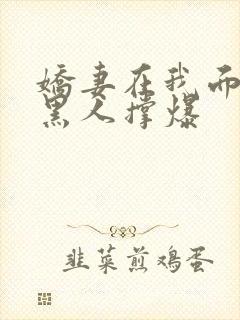 娇妻在我面
黑人撑爆
韭菜煎鸡蛋